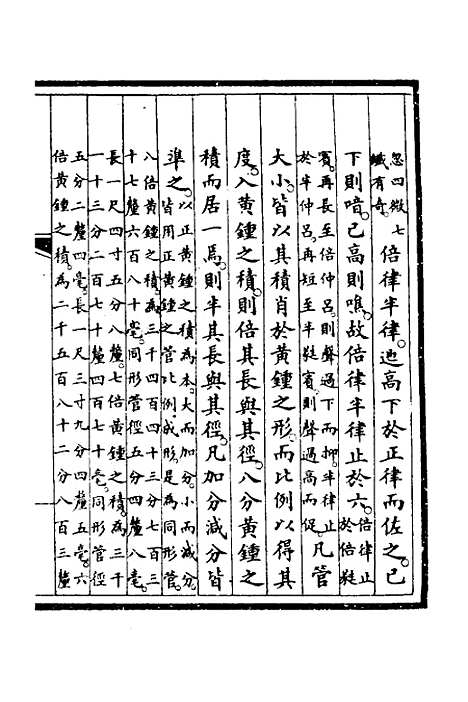 忽四微七
纖有奇
倍律半律遞高下於正律而佐之已
下則喑已高則噍故倍律半律止於六
倍律止
於倍蕤
賓再長至倍仲呂則聲過下而抑半律止
於半仲呂再短至半蕤賓則聲過高而促
凡管
大小皆以其積肖於黃鍾之形而比例以得其
度八黃鍾之積則倍其長與其徑八分黃鍾之
積而居一焉則半其長與其徑凡加分減分皆
準之
以正黃鍾之積為本大而加分小而減分
皆用正黃鍾之管比例成形是為同形管
八倍黃鍾之積為三千四百四十三分七百三
十七釐六百八十毫同形管徑五分四釐八毫
長一尺四寸五分八釐七倍黃鍾之積為三千
一十三分二百七十釐四百七十毫同形管徑
五分二釐四毫長一尺三寸九分四釐五毫六
倍黃鍾之積為二千五百八十二分八百三釐